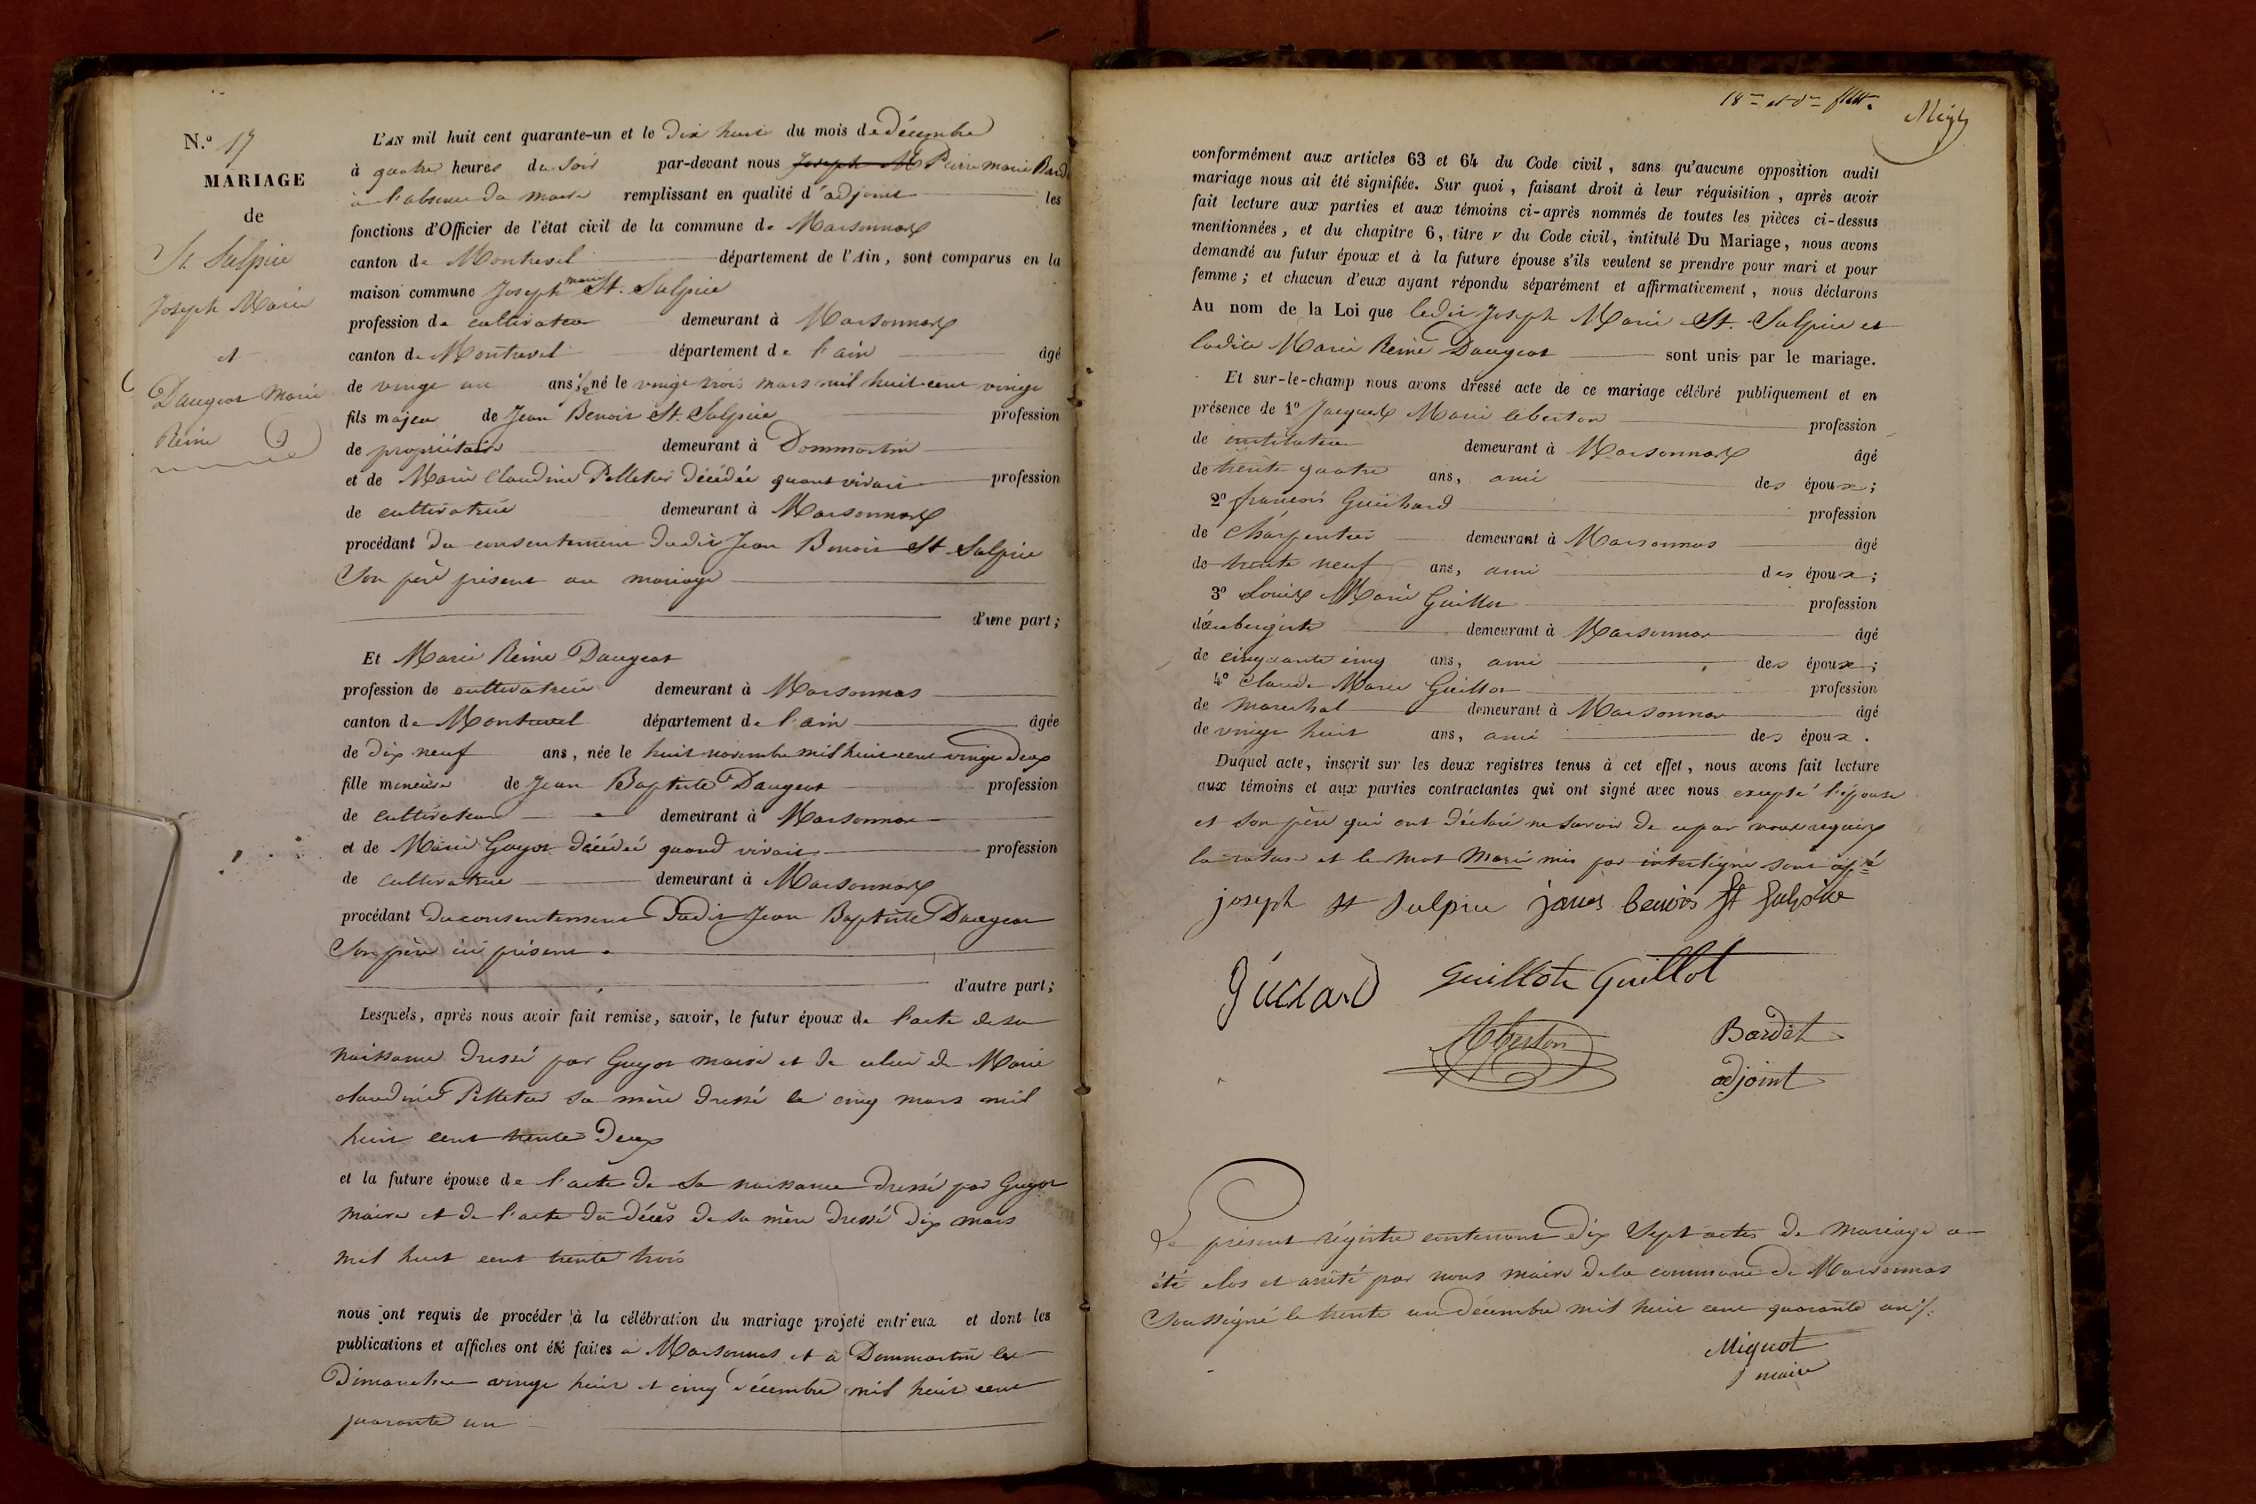 N.º 17
MARIAGE
de
St. Sulpice
Joseph Marie
et
Daugeat Marie
Reine
L'AN mil huit cent quarante-un et le dix huit du mois de décembre
à quatre heures du soir par-devant nous Pierre Marie
à l'absence du maire remplissant en qualité d'adjoint les
fonctions d'Officier de l'état civil de la commune de Marsonnas
canton de Montrevel département de l'Ain, sont comparus en la
maison commune Joseph marie St. Sulpice
profession de cultivateur demeurant à Marsonnas
canton de Montrevel département de l'ain âgé
de vingt un ans, né le vingt trois mars mil huit cent vingt
fils majeur de Jean Benoit St. Sulpice profession
de propriétaire demeurant à Dommartin
et de Marie Claudine Pelletier décédée quant vivait profession
de cultivatrice demeurant à Marsonnas
procédant du consentement dudit Jean Benoit St Sulpice
Son père présent au mariage
d'une part;
Et Marie Reine Daugeat
profession de cultivatrice demeurant à Marsonnas
canton de Montrevel département de l'ain âgée
de dix neuf ans, née le huit novembre mil huit cent vingt deux
fille mineure de Jean Baptiste Daugeat profession
de cultivateur demeurant à Marsonnas
et de Marie Guyot décédée quand vivait profession
de cultivatrice demeurant à Marsonnas
procédant du consentement dudit Jean Baptiste Daugeat
Son père ici présent
d'autre part;
Lesquels, après nous avoir fait remise, savoir, le futur époux de l'acte de sa
naissance dressé par Guyot maire et de celui de Marie
claudine Pelletier sa mère dressé le cinq mars mil
huit cent trente deux
et la future épouse de l'acte de sa naissance dressé par Guyot
maire et de l'acte du décès de sa mère dressé dix mars
mil huit cent trente trois
nous ont requis de procéder à la célébration du mariage projeté entr'eux et dont les
publications et affiches ont été faites à Marsonnas et à Dommartin les
Dimanches vingt huit et cinq décembre mil huit cent
quarante un
conformément aux articles 63 et 64 du Code civil, sans qu'aucune opposition audit
mariage nous ait été signifiée. Sur quoi, faisant droit à leur réquisition, après avoir
fait lecture aux parties et aux témoins ci-après nommés de toutes les pièces ci-dessus
mentionnées, et du chapitre 6, titre v du Code civil, intitulé Du Mariage, nous avons
demandé au futur époux et à la future épouse s'ils veulent se prendre pour mari et pour
femme; et chacun d'eux ayant répondu séparément et affirmativement, nous déclarons
Au nom de la Loi que ledit Joseph Marie St. Sulpice et
ladite Marie Reine Daugeat sont unis par le mariage.
Et sur-le-champ nous avons dressé acte de ce mariage célébré publiquement et en
présence de 1º Jacques Marie Cberton profession
de instituteur demeurant à Marsonnas âgé
de trente quatre ans, ami des époux;
2º françois Guichard profession
de Charpentier demeurant à Marsonnas âgé
de trente neuf ans, ami des époux;
3º Louis Marie Guillot profession
d'aubergiste demeurant à Marsonnas âgé
de cinquante cinq ans, ami des époux;
4º Claude Marie Guillot profession
de marechal demeurant à Marsonnas âgé
de vingt huit ans, ami des époux.
Duquel acte, inscrit sur les deux registres tenus à cet effet, nous avons fait lecture
aux témoins et aux parties contractantes qui ont signé avec nous excepté l'épouse
et son père qui ont déclaré ne savoir de ce par nous requis
la rature et le mot Marie mis par interligne sont
joseph st sulpice benoit st sulpice
Guillot Guillot
Bardet
adjoint
Le présent régistre contenant dix Sept actes de mariage a
été clos et arrêté par nous maire de la commune de Marsonnas
Soussigné le trente un décembre mil huit cent quarante un
Miguot
maire